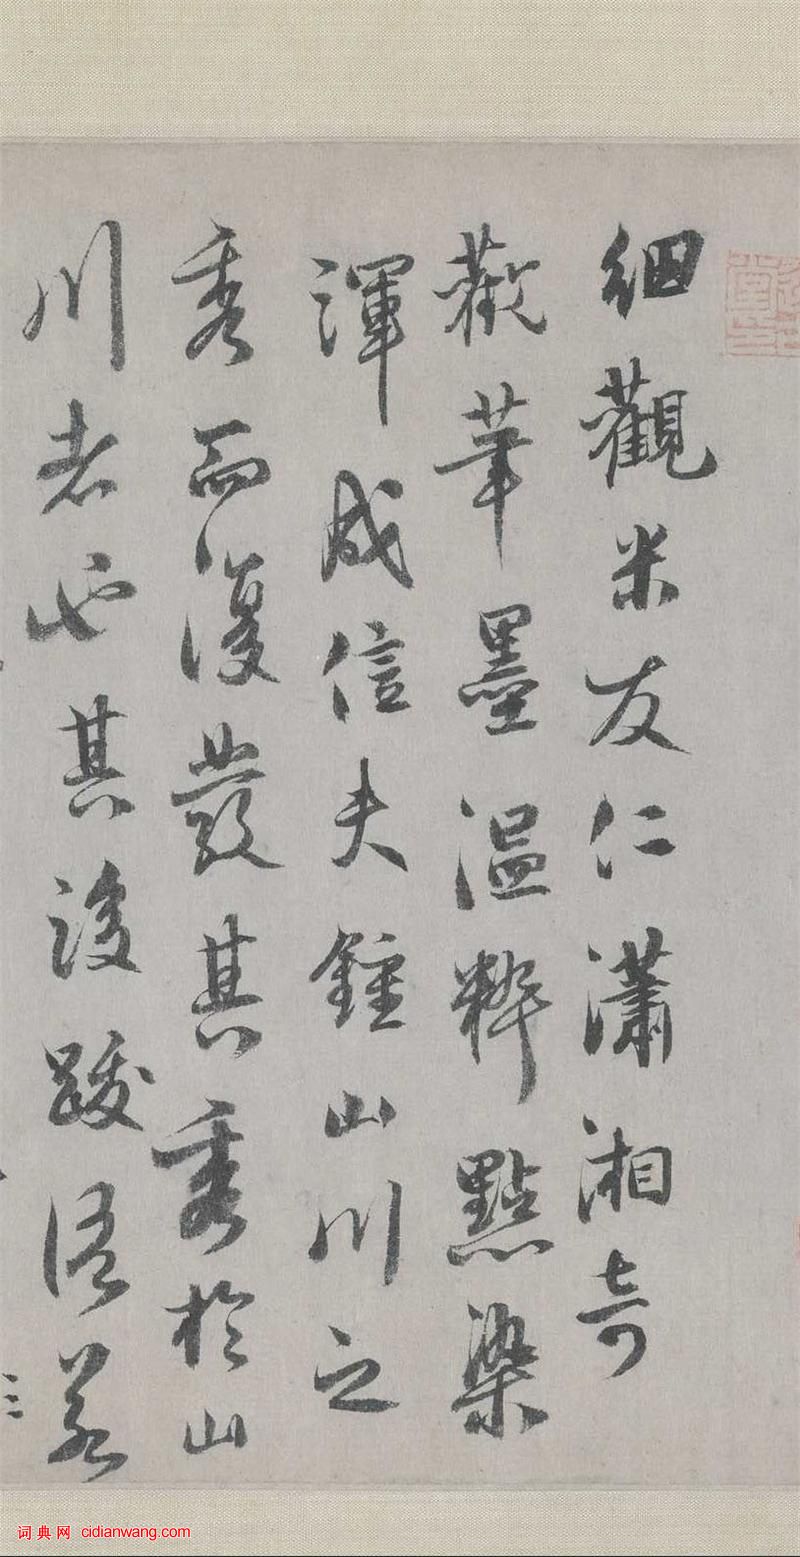 細觀米友仁瀟湘奇
觀筆墨溫粹點染
渾成信夫鍾山川之
秀而復發其秀於山
川者也其後跋語若
詞典网 cidianwang.com